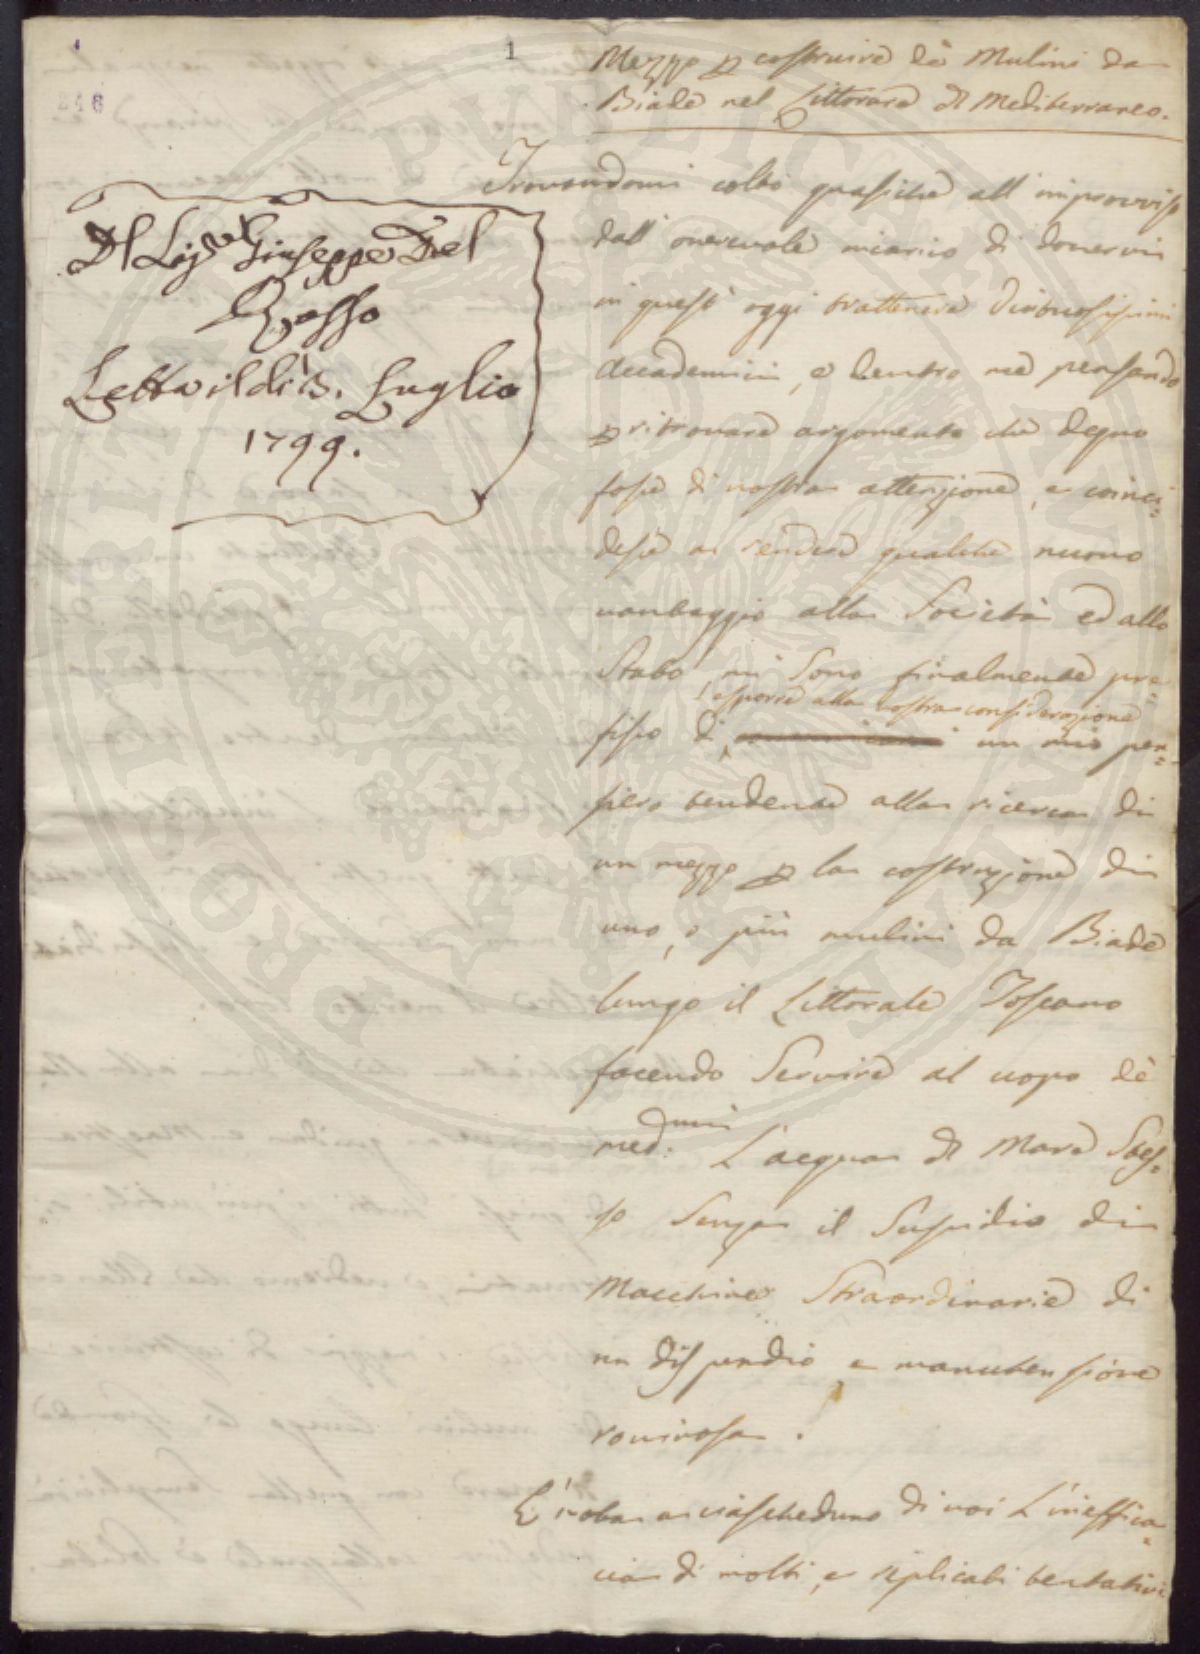 1
246
Mezzo p costruire de Mulini da
Biade nel Littorare del Mediterraneo.
Del Sig.r Giuseppe Del
Rosso
Letta il dì 3. Luglio
1799.
Trovandomi colto quasiche all' improvviso
dall' onorevole incarico di dovervi
in quest' oggi trattenere Virtuosissimi
Accademici, e dentro me pensando
p ritrovare argomento che degno
fosse di vostra attenzione, e coinci-
desse a rendere qualche nuovo
vantaggio alla Società ed allo
Stato, mi sono finalmente pre-
esporre alla vostra considerazione
fisso di un mio pen-
siero tendente alla ricerca di
un mezzo p la costruzione di
uno, o più mulini da Biade
lungo il Littorale Toscano
facendo servire al uopo de
med.mi L'acqua di Mare Stes-
so senza il Sussidio di
Macchine Straordinarie di
un dispendio, e manutensione
rovinosa.
E' nota a ciascheduno di voi L'ineffica-
cia di molti, e replicati tentativi
PUBLICAE
PROSPERITATI